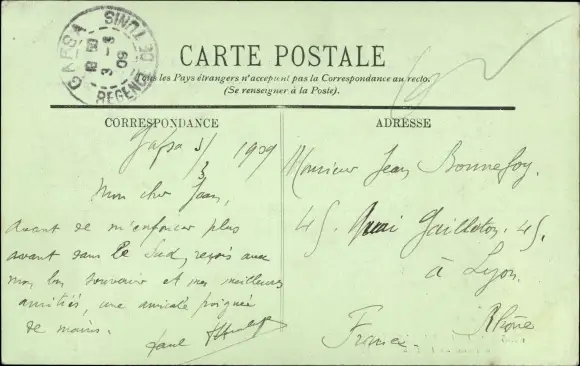 GAFSA
REGENCE DE TUNIS
18 30
3 - 3
09
CARTE POSTALE
Tous les Pays étrangers n'acceptent pas la Correspondance au recto.
(Se renseigner à la Poste).
CORRESPONDANCE
Gafsa 3/3 1909
Mon cher Jean,
avant de m'enfoncer plus
avant dans le Sud, reçois avec
mon bon souvenir et mes meilleures
amitiés, une amicale poignée
de mains.
Paul
ADRESSE
Monsieur Jean Bonnefoy.
45. Quai Gailleton. 45.
à Lyon.
Rhône
France.